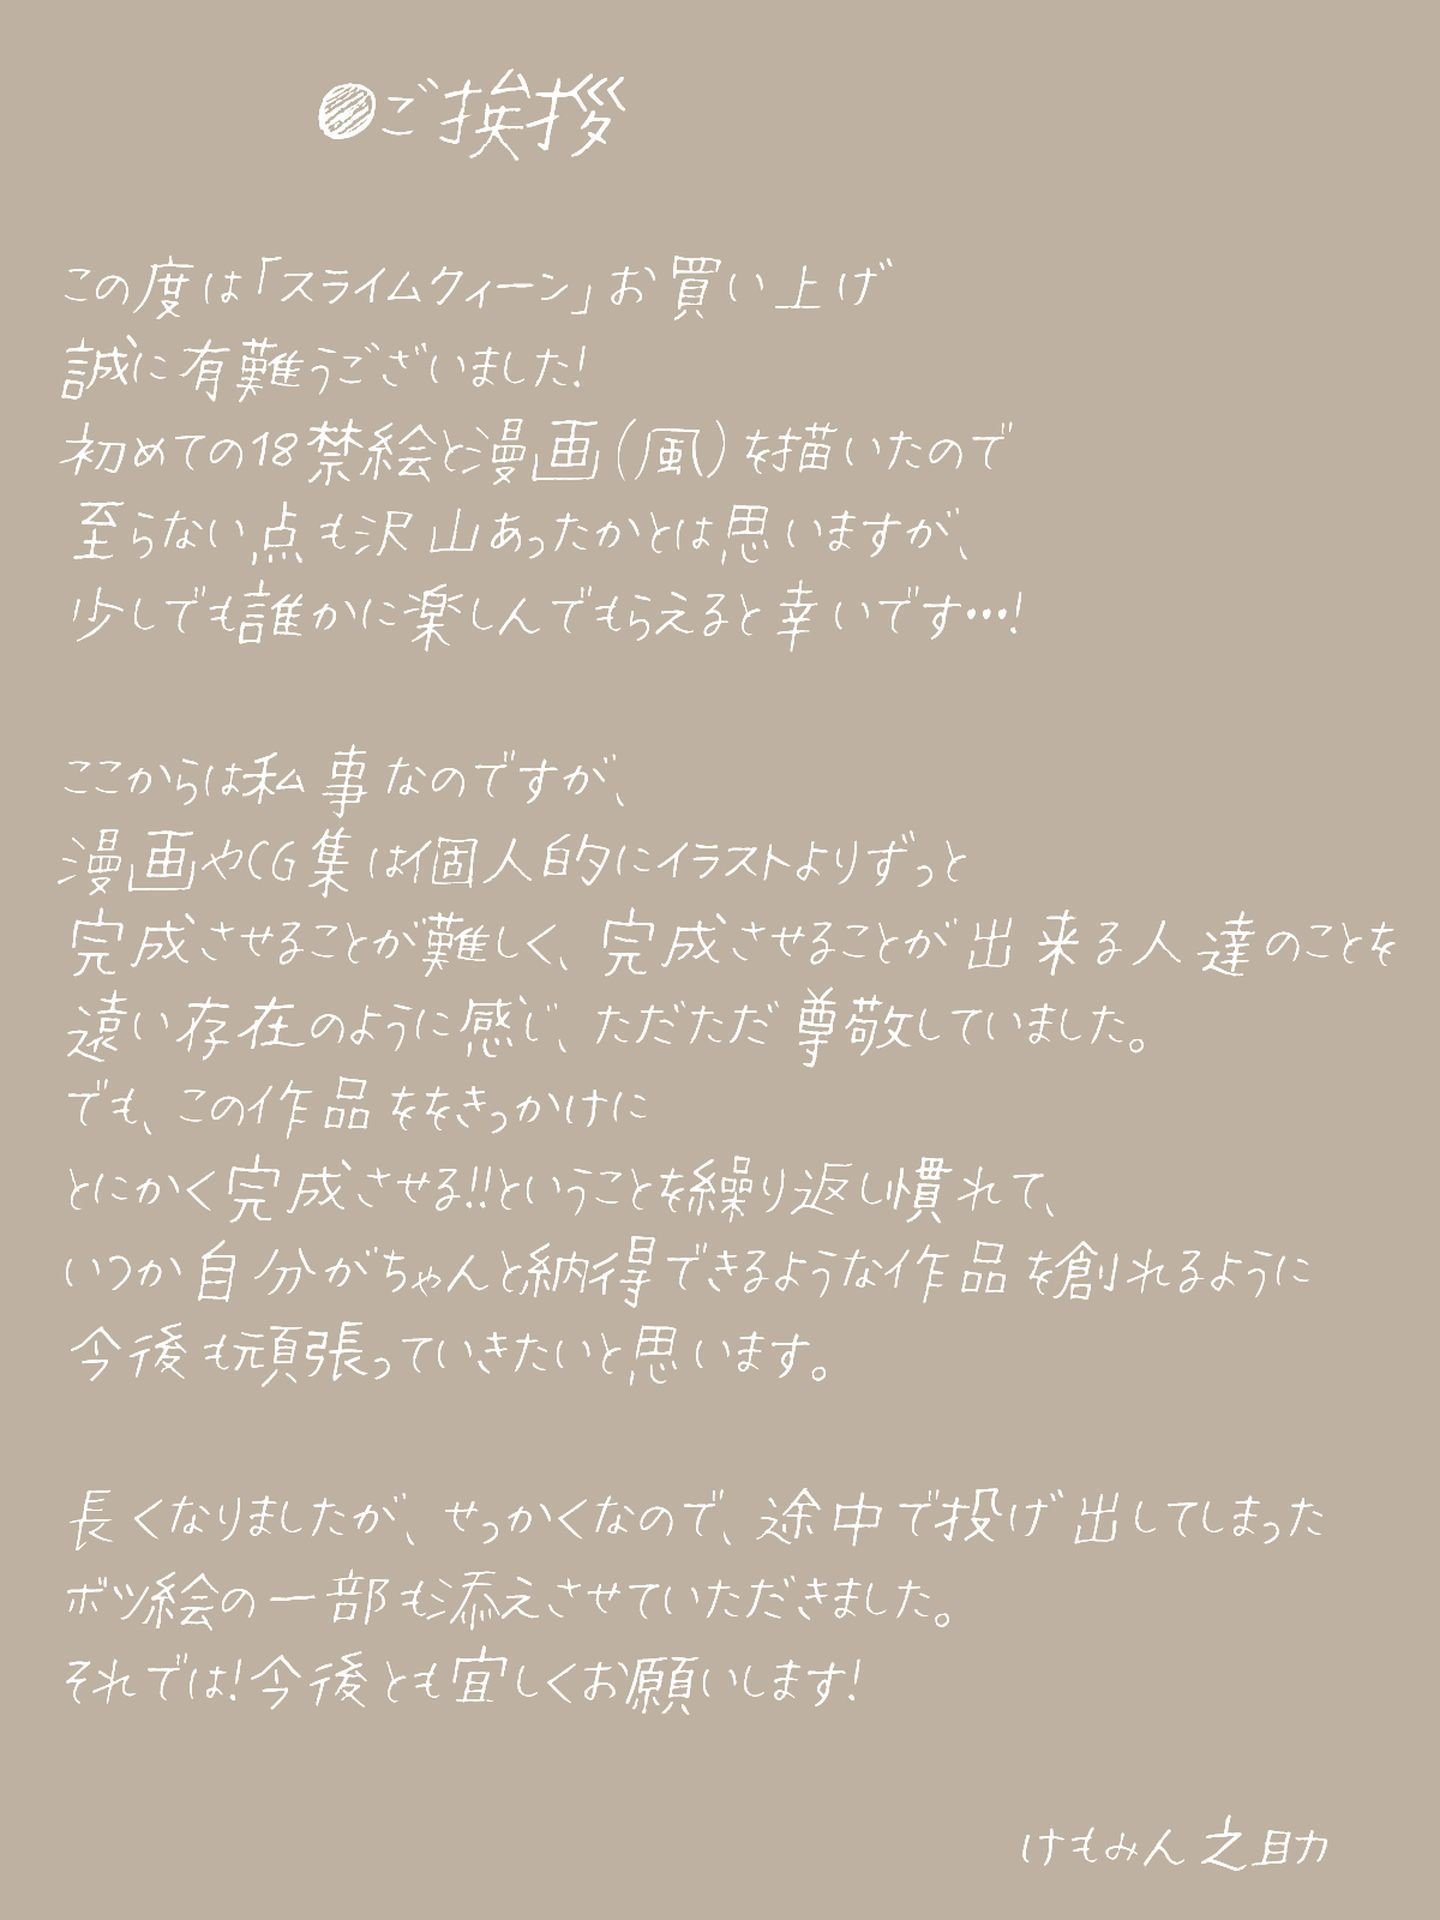 ●ご挨拶
この度は「スライムクィーン」お買い上げ
誠に有難うございました!
初めての18禁絵と漫画(風)を描いたので
至らない点も沢山あったかとは思いますが、
少しでも誰かに楽しんでもらえると幸いです…!
ここからは私事なのですが、
漫画やCG集は個人的にイラストよりずっと
完成させることが難しく、完成させることが出来る人達のことを
遠い存在のように感じ、ただただ尊敬していました。
でも、この作品ををきっかけに
とにかく完成させる!!ということを繰り返し慣れて、
いつか自分がちゃんと納得できるような作品を創れるように
今後も頑張っていきたいと思います。
長くなりましたが、せっかくなので、途中で投げ出してしまった
ボツ絵の一部も添えさせていただきました。
それでは!今後とも宜しくお願いします!
けもみん之助